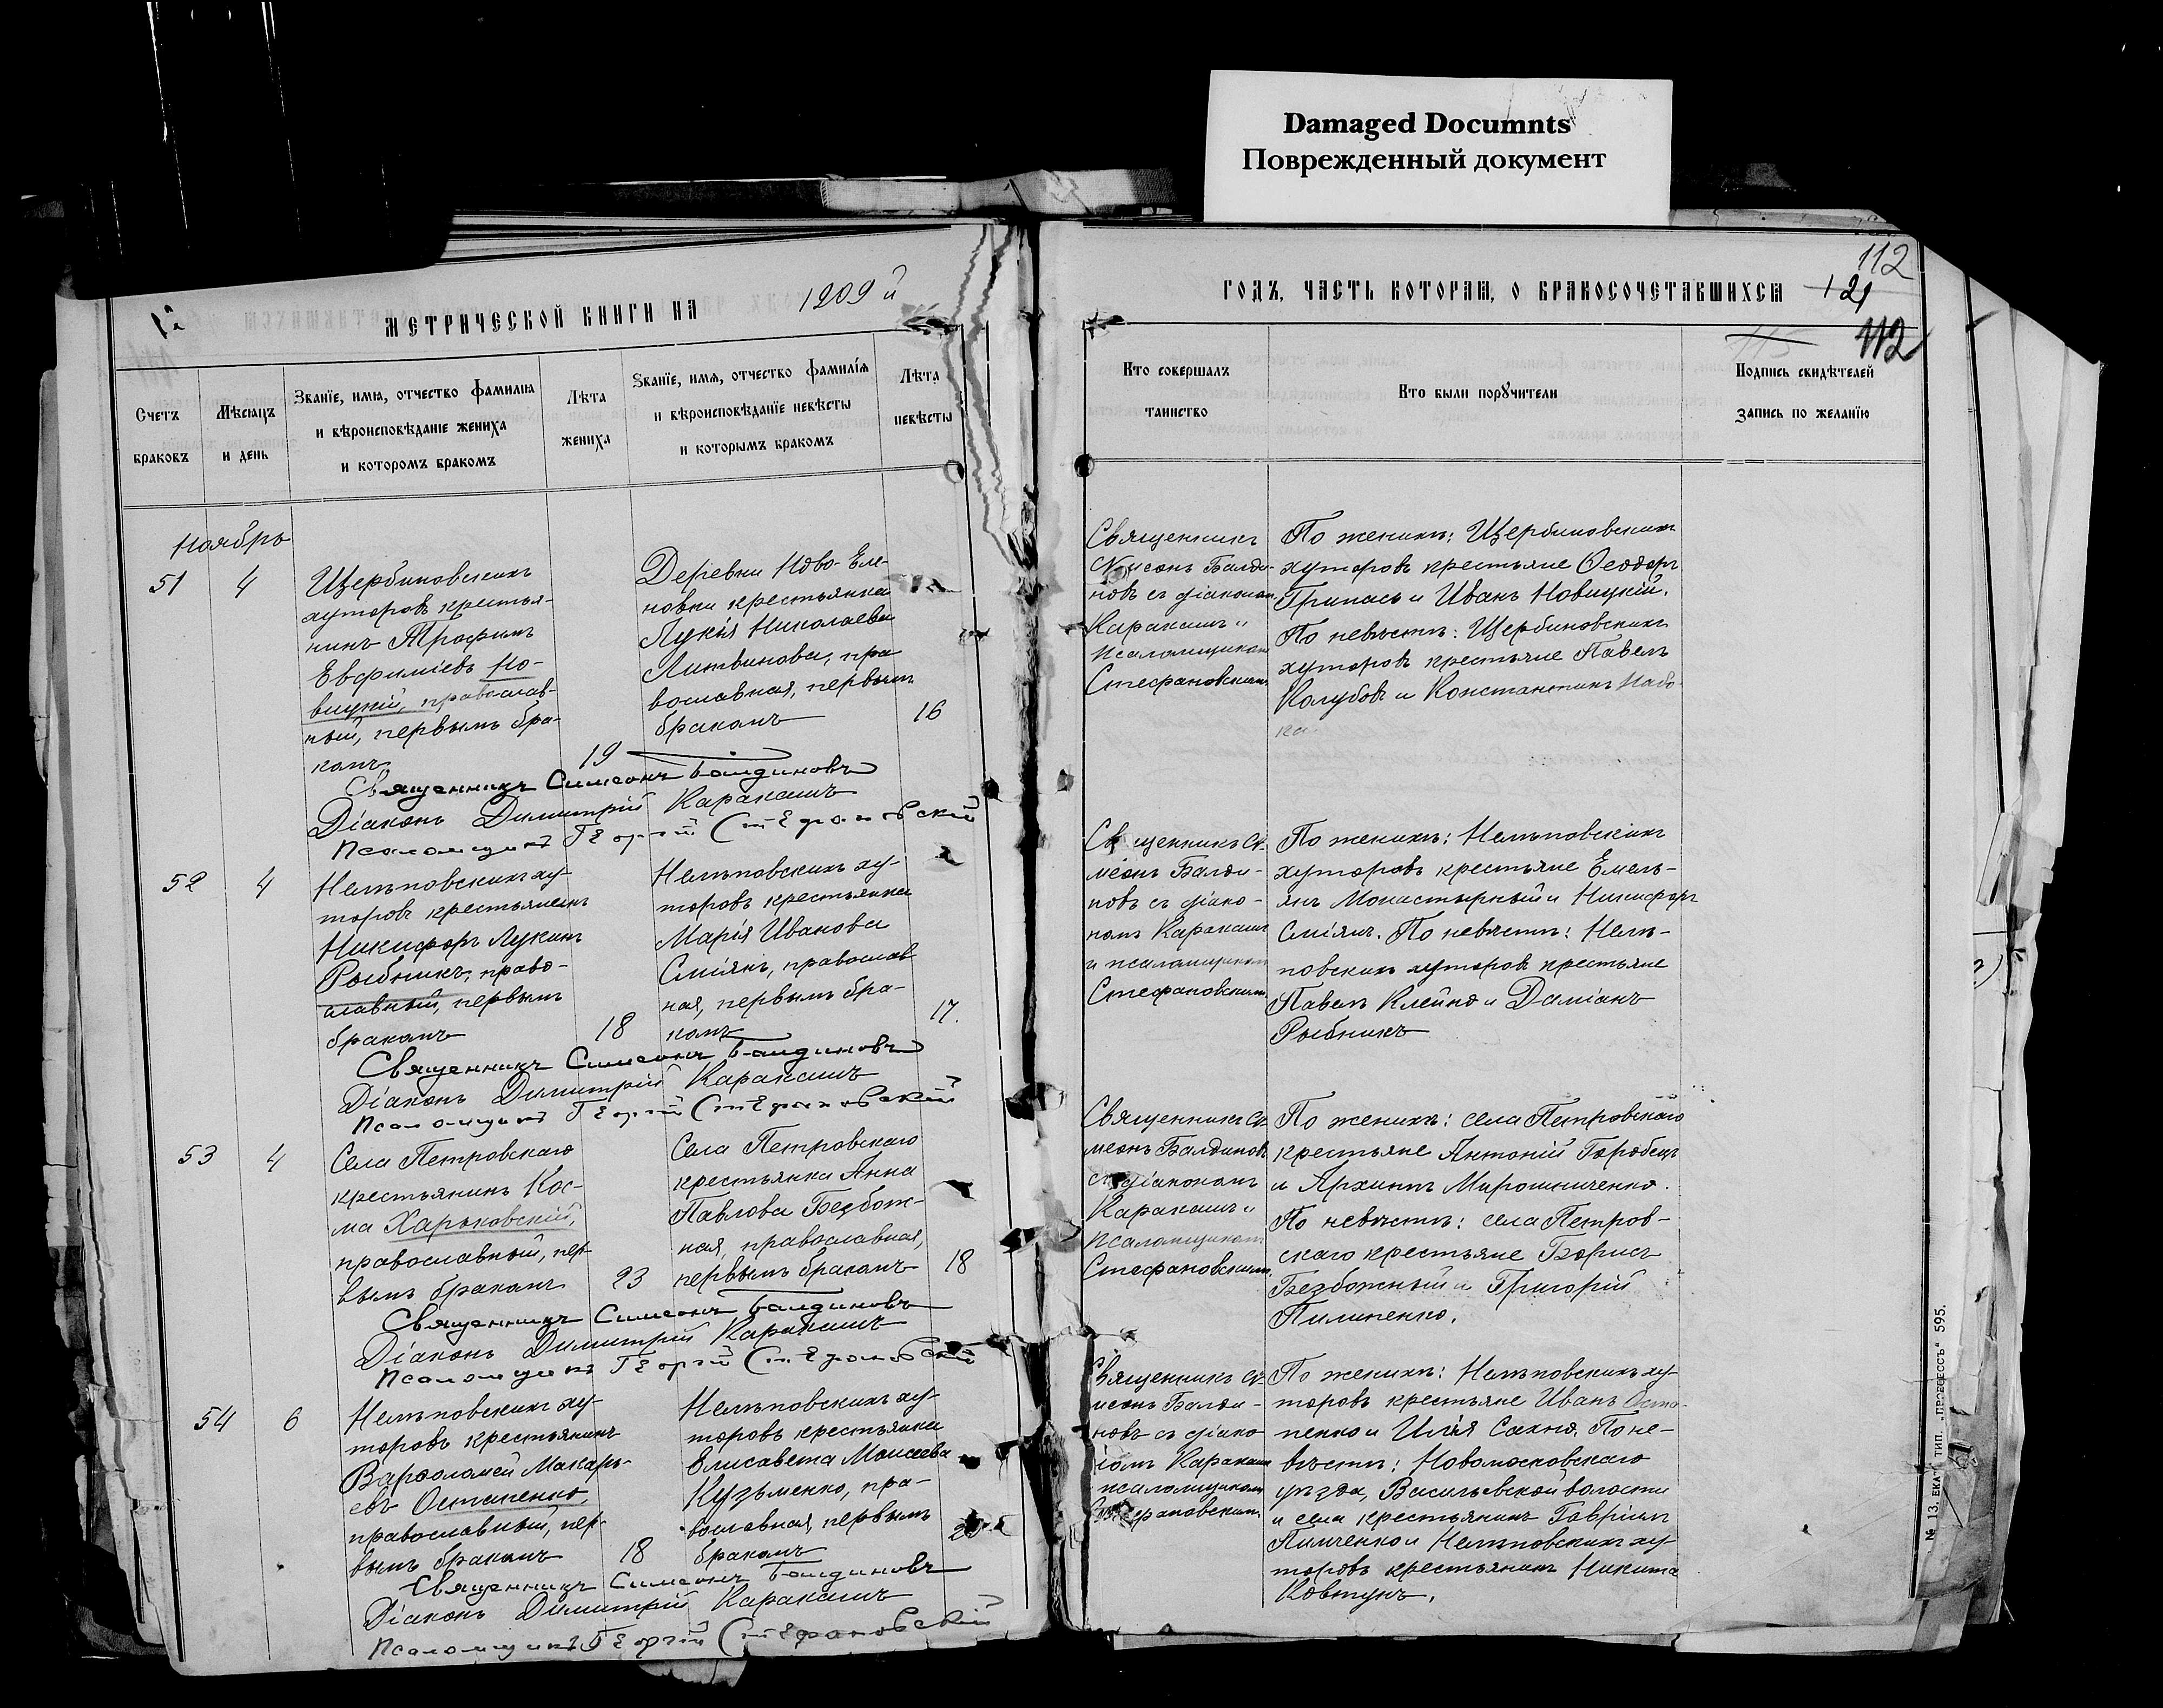 Damaged Documnts
Поврежденный документ
112
МЕТРИЧЕСКОЙ КНИГИ НА 1909 й
ГОДЪ, ЧАСТЬ КОТОРАЯ, О БРАКОСОЧЕТАВШИХСЯ
121
112
115
Счетъ
браковъ
Мѣсяцъ
и день
Званіе, имя, отчество фамилія
и вѣроисповѣданіе жениха
и которомъ бракомъ
Лѣта
жениха
Званіе, имя, отчество фамилія
и вѣроисповѣданіе невѣсты
и которымъ бракомъ
Лѣта
невѣсты
Кто совершалъ
таинство
Кто были поручители
Подпись свидѣтелей
запись по желанію
Ноябрь
51
4
Щербиновскихъ
хуторовъ крестья-
нинъ Трофимъ
Евфиміевъ Но-
вицкій, православ-
ный, первымъ бра-
комъ
19
Деревни Ново-Еле-
новки крестьянка
Лукія Николаева
Литвинова, пра
вославная, первымъ
бракомъ
16
Священникъ
Симеонъ Балди-
новъ съ діакономъ
Каракашъ и
псаломщикомъ
Стефановскимъ
По женихѣ: Щербиновскихъ
хуторовъ крестьяне Ѳеодоръ
Припасъ и Иванъ Новицкій.
По невѣстѣ: Щербиновскихъ
хуторовъ крестьяне Павелъ
Колубовъ и Константинъ Набо-
ка.
Священникъ Симеонъ Балдиновъ
Діаконъ Димитрій Каракашъ
Псаломщикъ Георгій Стефановскій
52
4
Нелѣповскихъ ху-
торовъ крестьянинъ
Никифоръ Лукинъ
Рыбникъ, право-
славный, первымъ
бракомъ
18
Нелѣповскихъ ху-
торовъ крестьянка
Марія Иванова
Сміянъ, православ
ная, первымъ бра-
комъ
17.
Священникъ Си-
меонъ Балди-
новъ съ діако-
номъ Каракашъ
и псаломщикомъ
Стефановскимъ.
По женихѣ: Нелѣповскихъ
хуторовъ крестьяне Емель-
янъ Монастырный и Никифоръ
Сміянъ. По невѣстѣ: Нелѣ-
повскихъ хуторовъ крестьяне
Павелъ Клейно и Даміанъ
Рыбникъ
Священникъ Симеонъ Балдиновъ
Діаконъ Димитрій Каракашъ
Псаломщикъ Георгій Стефановскій
53
4
Села Петровскаго
крестьянинъ Кос-
ма Харьковскій,
православный, пер-
вымъ бракомъ
23
Села Петровскаго
крестьянка Анна
Павлова Безбож-
ная, православная,
первымъ бракомъ
18
Священникъ Си-
меонъ Балдиновъ
съ діакономъ
Каракашъ и
псаломщикомъ
Стефановскимъ.
По женихѣ: села Петровскаго
крестьяне Антоній Горобецъ
и Архиппъ Мирошниченко.
По невѣстѣ: села Петров-
скаго крестьяне Борисъ
Безбожный и Григорій
Пилипенко.
Священникъ Симеонъ Балдиновъ
Діаконъ Димитрій Каракашъ
Псаломщикъ Георгій Стефановскій
54
6
Нелѣповскихъ ху-
торовъ крестьянинъ
Варѳоломей Макарь-
евъ Остапенко,
православный, пер-
вымъ бракомъ
18
Нелѣповскихъ ху-
торовъ крестьянка
Елисавета Моисеева
Кузьменко, пра-
вославная, первымъ
бракомъ
Священникъ Си-
меонъ Балди-
новъ съ діако
номъ Каракашъ
псаломщикомъ
Стефановскимъ
По женихѣ: Нелѣповскихъ ху-
торовъ крестьяне Иванъ Оста-
пенко и Илія Сахно. По не-
вѣстѣ: Новомосковскаго
уѣзда, Васильевской волости
и села крестьянинъ Гавріилъ
Пимченко и Нелѣповскихъ ху-
торовъ крестьянинъ Никита
Ковтунъ.
Священникъ Симеонъ Балдиновъ
Діаконъ Димитрій Каракашъ
Псаломщикъ Георгій Стефановскій
№ 13. ЕКАТ. ТИП. „ПРОГРЕССЪ“ 595.